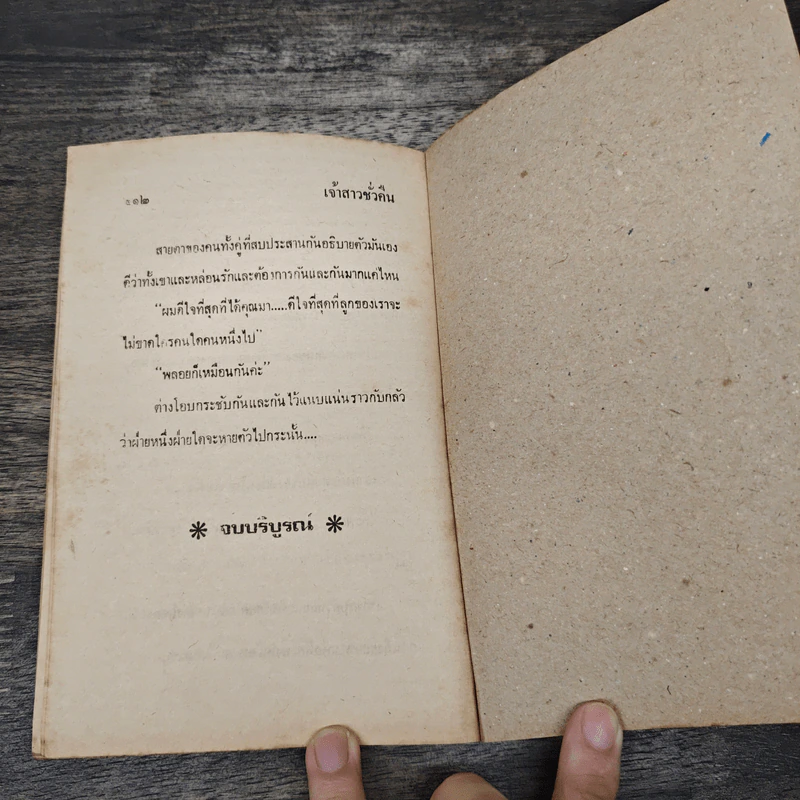 ๑๑๒
เจ้าสาวชั่วคืน
สายตาของคนทั้งคู่ที่สบประสานกันอธิบายตัวมันเอง
ดีว่าทั้งเขาและหล่อนรักและต้องการกันและกันมากแค่ไหน
“ผมดีใจที่สุดที่ได้คุณมา.....ดีใจที่สุดที่ลูกของเราจะ
ไม่ขาดใครคนใดคนหนึ่งไป”
“พลอยก็เหมือนกันค่ะ”
ต่างโอบกระชับกันและกันไว้แนบแน่นราวกับกลัว
ว่าฝ่ายหนึ่งฝ่ายใดจะหายตัวไปกระนั้น....
* จบบริบูรณ์ *